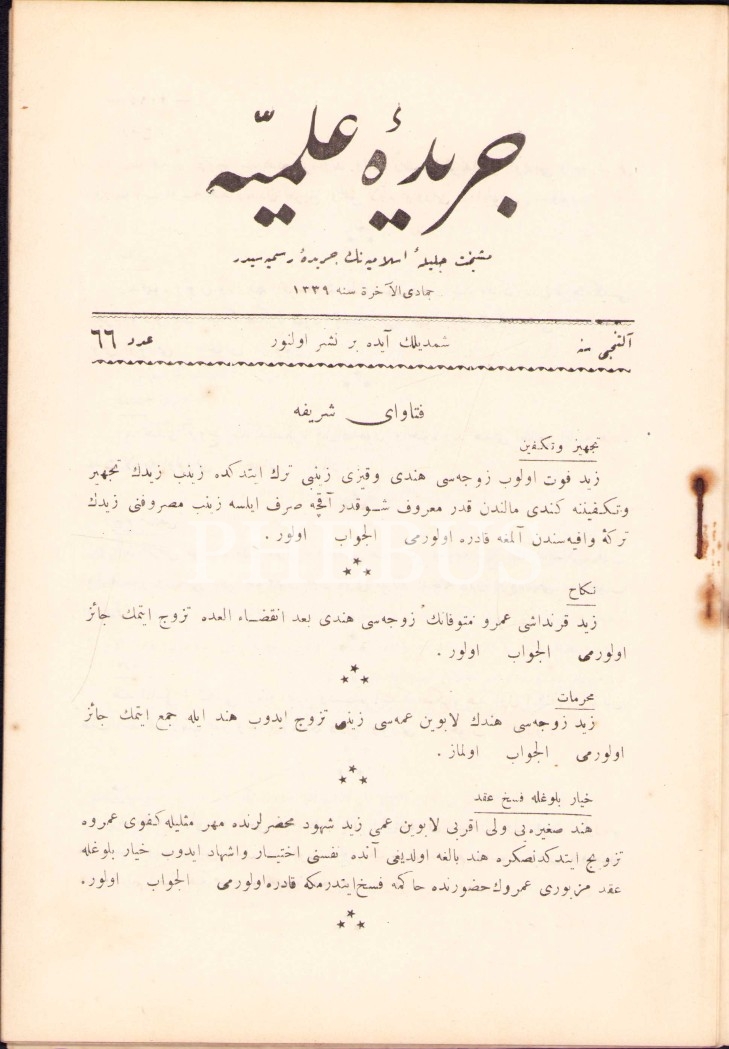 جريدهٔ علميّه
مشيخت جليلهٔ اسلاميه‌نك جريدهٔ رسميه‌سيدر
جمادى الآخرة سنه ١٣٣٩
آلتنجى سنه شمديلك آيده بر نشر اولنور عدد ٦٦
فتاواى شريفه
تجهيز وتكفين
زيد فوت اولوب زوجه‌سى هندى وقيزى زينبى ترك ايتدكده زينب زيدك تجهيز
وتكفيننه كندى مالندن قدر معروف شو قدر آقچه صرف ايلسه زينب مصروفنى زيدك
تركهٔ وافيه‌سندن آلمغه قادره اولورمى الجواب اولور .
نكاح
زيد قرنداشى عمرو متوفانك زوجه‌سى هندى بعد انقضاء العده تزوج ايتمك جائز
اولورمى الجواب اولور .
محرمات
زيد زوجه‌سى هندك لابوين عمه‌سى زينبى تزوج ايدوب هند ايله جمع ايتمك جائز
اولورمى الجواب اولماز .
خيار بلوغله فسخ عقد
هند صغيره‌يى ولى اقربى لابوين عمى زيد شهود محضرلرنده مهر مثليله كفوى عمروه
تزويج ايتدكدنصكره هند بالغه اولديغى آنده نفسنى اختيار واشهاد ايدوب خيار بلوغله
عقد مزبورى عمروك حضورنده حاكمه فسخ ايتدرمكه قادره اولورمى الجواب اولور.
PHEBUS